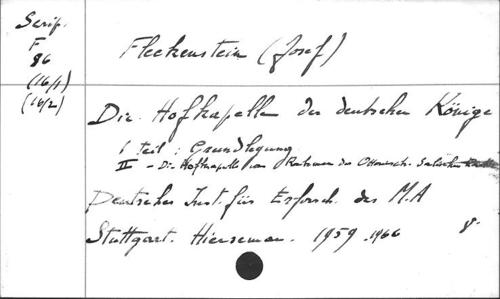 Scrip.
F
86
(16/1)
(16/2)
Fleckenstein (Josef)
Die Hofkapelle der deutschen Könige
I teil : Grundlegung
II - Die Hofkapelle im Rahmen der Ottonisch-Salischen
Deutsches Inst. für Erforsch. des M.A
Stuttgart. Hiersemann. 1959.1966
8°